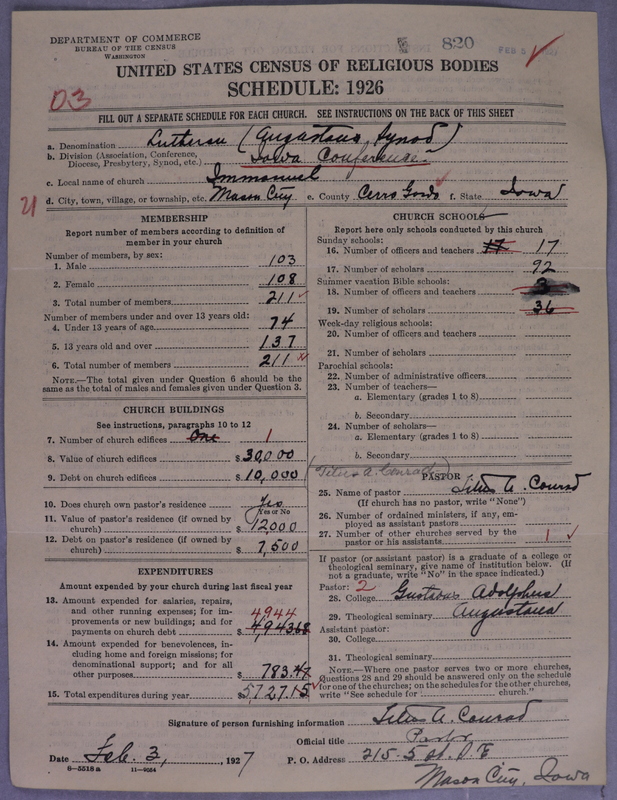 DEPARTMENT OF COMMERCE
BUREAU OF THE CENSUS
WASHINGTON
820
FEB 5
UNITED STATES CENSUS OF RELIGIOUS BODIES
SCHEDULE: 1926
D3
FILL OUT A SEPARATE SCHEDULE FOR EACH CHURCH. SEE INSTRUCTIONS ON THE BACK OF THIS SHEET
a. Denomination Lutheran (Augustana Synod)
b. Division (Association, Conference, Diocese, Presbytery, Synod, etc.) Iowa Conference.
c. Local name of church Immanuel
d. City, town, village, or township, etc. Mason City e. County Cerro Gordo f. State Iowa
21
MEMBERSHIP
Report number of members according to definition of
member in your church
Number of members, by sex:
1. Male 103
2. Female 108
3. Total number of members 211
Number of members under and over 13 years old:
4. Under 13 years of age 74
5. 13 years old and over 137
6. Total number of members 211
NOTE.—The total given under Question 6 should be the
same as the total of males and females given under Question 3.
CHURCH BUILDINGS
See instructions, paragraphs 10 to 12
7. Number of church edifices One 1
8. Value of church edifices $ 30,000
9. Debt on church edifices $ 10,000
10. Does church own pastor's residence Yes
Yes or No
11. Value of pastor's residence (if owned by
church) $ 12000
12. Debt on pastor's residence (if owned by
church) $ 7,500
EXPENDITURES
Amount expended by your church during last fiscal year
13. Amount expended for salaries, repairs,
and other running expenses; for im-
provements or new buildings; and for
payments on church debt $ 4944 4,943.68
14. Amount expended for benevolences, in-
cluding home and foreign missions; for
denominational support; and for all
other purposes $ 783.47
15. Total expenditures during year $ 5727.15
CHURCH SCHOOLS
Report here only schools conducted by this church
Sunday schools:
16. Number of officers and teachers 17 17
17. Number of scholars 92
Summer vacation Bible schools:
18. Number of officers and teachers 3
19. Number of scholars 36
Week-day religious schools:
20. Number of officers and teachers
21. Number of scholars
Parochial schools:
22. Number of administrative officers
23. Number of teachers—
a. Elementary (grades 1 to 8)
b. Secondary
24. Number of scholars—
a. Elementary (grades 1 to 8)
b. Secondary
(Titus A. Conrad)
PASTOR
25. Name of pastor Titus A. Conrad
(If church has no pastor, write "None")
26. Number of ordained ministers, if any, em-
ployed as assistant pastors
27. Number of other churches served by the
pastor or his assistants 1
If pastor (or assistant pastor) is a graduate of a college or
theological seminary, give name of institution below. (If
not a graduate, write "No" in the space indicated.)
Pastor: 2
28. College Gustavus Adolphus
29. Theological seminary Augustana
Assistant pastor:
30. College
31. Theological seminary
NOTE.—Where one pastor serves two or more churches,
Questions 28 and 29 should be answered only on the schedule
for one of the churches; on the schedules for the other churches,
write "See schedule for church."
Signature of person furnishing information Titus A. Conrad
Official title Pastor
Date Feb. 3, 1927
P. O. Address 215-5 St. S. E
Mason City, Iowa
6—5518 a 11—9054